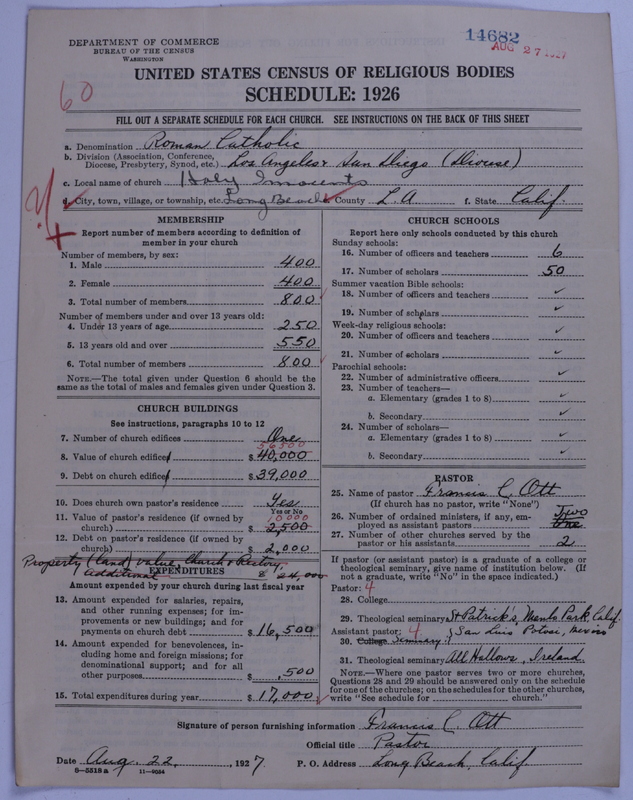 14682
AUG 27 1927
DEPARTMENT OF COMMERCE
BUREAU OF THE CENSUS
WASHINGTON
UNITED STATES CENSUS OF RELIGIOUS BODIES
SCHEDULE: 1926
60
FILL OUT A SEPARATE SCHEDULE FOR EACH CHURCH. SEE INSTRUCTIONS ON THE BACK OF THIS SHEET
a. Denomination Roman Catholic
b. Division (Association, Conference, Diocese, Presbytery, Synod, etc.) Los Angeles & San Diego (Diocese)
c. Local name of church Holy Innocents
d. City, town, village, or township, etc. Long Beach e. County L.A f. State Calif.
MEMBERSHIP
Report number of members according to definition of
member in your church
Number of members, by sex:
1. Male 400
2. Female 400
3. Total number of members 800
Number of members under and over 13 years old:
4. Under 13 years of age 250
5. 13 years old and over 550
6. Total number of members 800
NOTE.—The total given under Question 6 should be
same as the total of males and females given under Question 3.
CHURCH BUILDINGS
See instructions, paragraphs 10 to 12
7. Number of church edifices One
56500
8. Value of church edifices $ 40,000
9. Debt on church edifices $ 39,000
10. Does church own pastor's residence Yes
Yes or No
11. Value of pastor's residence (if owned by
church) 10000 $ 2,500
12. Debt on pastor's residence (if owned by
church) $ 2,000
Property (Land) value, Church & Rectory
Additional $ 24,000
EXPENDITURES
Amount expended by your church during last fiscal year
13. Amount expended for salaries, repairs,
and other running expenses; for im-
provements or new buildings; and for
payments on church debt $ 16,500
14. Amount expended for benevolences, in-
cluding home and foreign missions; for
denominational support; and for all
other purposes $ 500
15. Total expenditures during year $ 17,000
CHURCH SCHOOLS
Report here only schools conducted by this church
Sunday schools:
16. Number of officers and teachers 6
17. Number of scholars 50
Summer vacation Bible schools:
18. Number of officers and teachers ✓
19. Number of scholars ✓
Week-day religious schools:
20. Number of officers and teachers ✓
21. Number of scholars ✓
Parochial schools:
22. Number of administrative officers ✓
23. Number of teachers—
a. Elementary (grades 1 to 8) ✓
b. Secondary ✓
24. Number of scholars—
a. Elementary (grades 1 to 8) ✓
b. Secondary ✓
PASTOR
25. Name of pastor Francis C. Ott
(If church has no pastor, write "None")
Two
26. Number of ordained ministers, if any, em-
ployed as assistant pastors One
27. Number of other churches served by the
pastor or his assistants 2
If pastor (or assistant pastor) is a graduate of a college or
theological seminary, give name of institution below. (If
not a graduate, write "No" in the space indicated.)
Pastor: 4
28. College
29. Theological seminary St Patrick's, Menlo Park, Calif.
Assistant pastor: 4
30. College Seminary { San Luis Potosi, Mexico
31. Theological seminary All Hallows, Ireland
NOTE.—Where one pastor serves two or more churches,
Questions 28 and 29 should be answered only on the schedule
for one of the churches; on the schedules for the other churches,
write "See schedule for church."
Signature of person furnishing information Francis C. Ott
Official title Pastor
Date Aug. 22, 1927 P. O. Address Long Beach, Calif
6—5518 a 11—9054